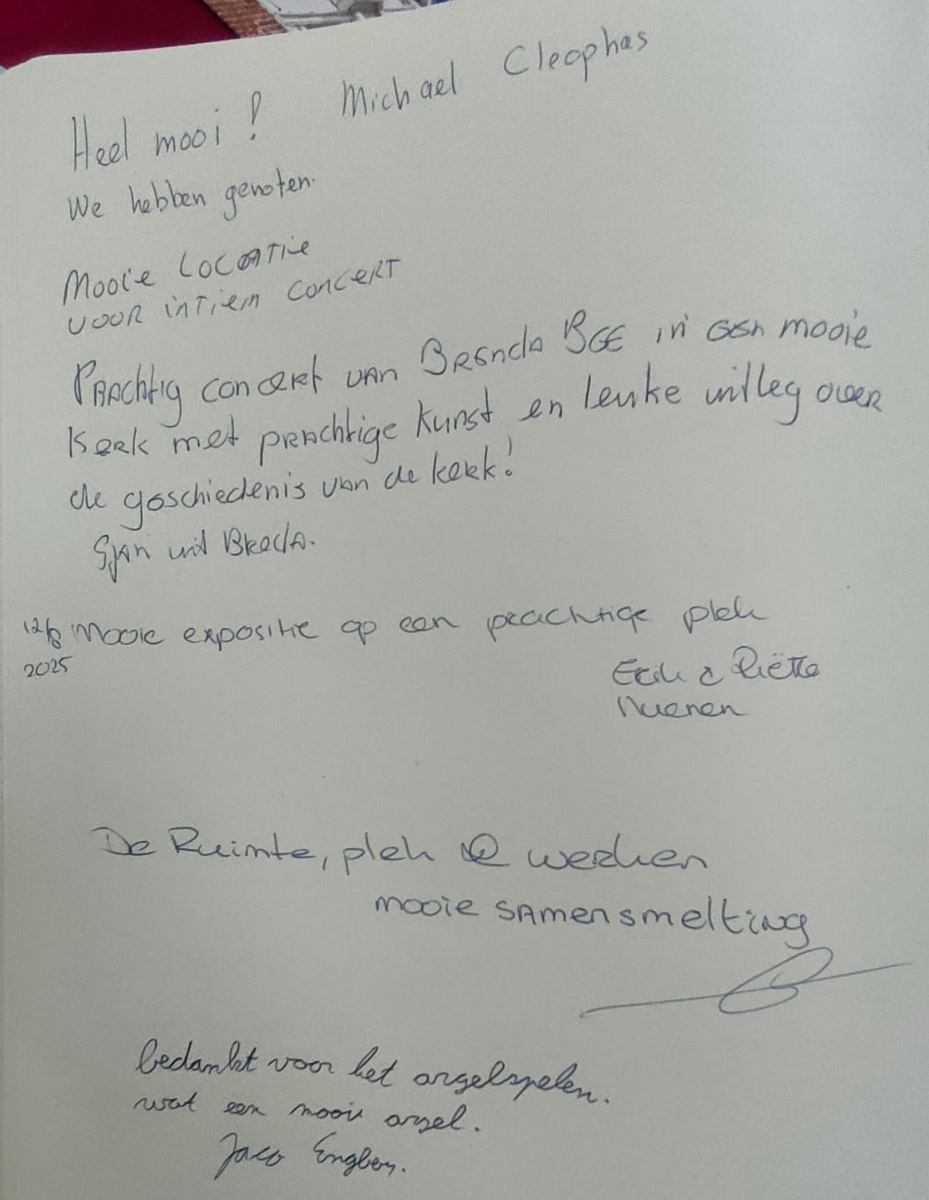 Heel mooi! Michael Cleophas
We hebben genoten.
Mooie locatie
voor intiem concert
Prachtig concert van Brenda BGE in een mooie
kerk met prachtige kunst en leuke uitleg over
de geschiedenis van de kerk!
Sjan uit Breda.
12/8 Mooie expositie op een prachtige plek
2025
& Riëtte
Nuenen
De Ruimte, plek & werken
mooie samensmelting
bedankt voor het orgelspelen.
wat een mooi orgel.
Jaco